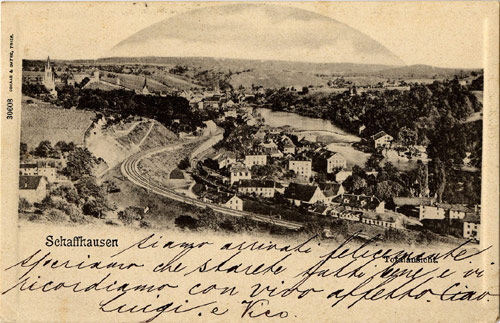 30608 OSCAR & DUTKE, TRIER.
Schaffhausen
Totalansicht.
Siamo arrivati felicemente
speriamo che starete tutti bene e vi
ricordiamo con vivo affetto. Ciao.
Luigi. e Vico.